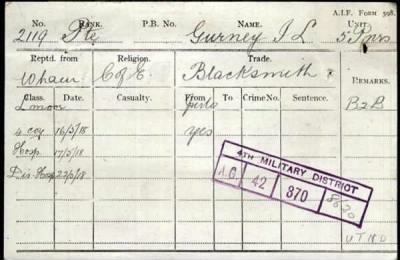 A.I.F. FORM 598.
NO. RANK. P.B. NO. NAME. UNIT
2119 Pte Gurney I L 5 Pnrs
Reptd. from Religion. Trade.
Whaen C of E. Blacksmith REMARKS.
Class. Date. Casualty. From To Crime No. Sentence. B2B
L moor
4 coy 16/5/18 yes
Hosp 17/5/18
Dis Hosp 22/5/18
4TH MILITARY DISTRICT
A.G. 42 870
8620